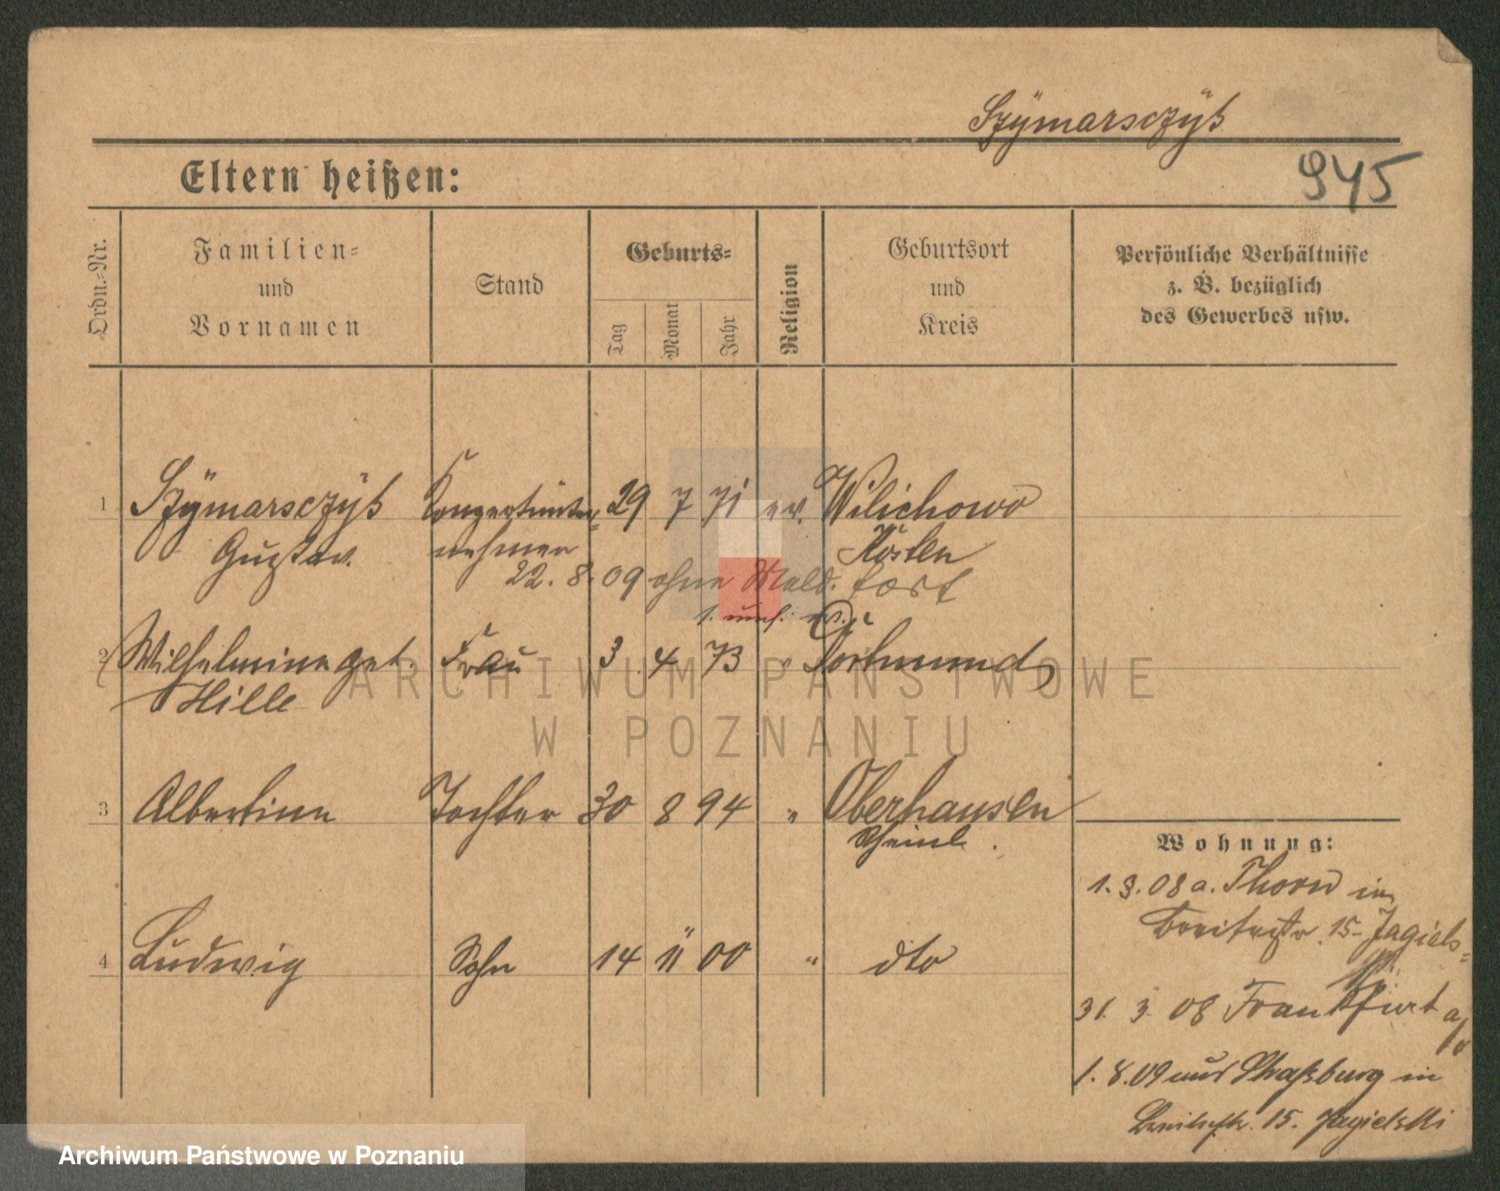 Szÿmarsczÿk
945
Eltern heißen:
Ordn.=Nr.
Familien=
und
Vornamen
Stand
Geburts=
Tag
Monat
Jahr
Religion
Geburtsort
und
Kreis
Persönliche Verhältnisse
z. B. bezüglich
des Gewerbes usw.
1 Szÿmarsczÿk Konzertunter= 29 7 71 ev. Wilichowo
Gustav nehmer Kosten
22. 8. 09 ohne Meld. fort
2 Wilhelmine geb Frau 3 4 73 " Dortmund
Hille
3 Albertine Tochter 30 8 94 " Oberhausen
Rheinl.
4 Ludwig Sohn 14 11 00 " dto
Wohnung:
1. 3. 08 a. Thorn in
Breitestr. 15 Jagiels=
ki
31. 3. 08 Frankfurt a/O
1. 8. 09 aus Straßburg in
Breitestr. 15. Jagielski
ARCHIWUM PAŃSTWOWE
W POZNANIU
Archiwum Państwowe w Poznaniu